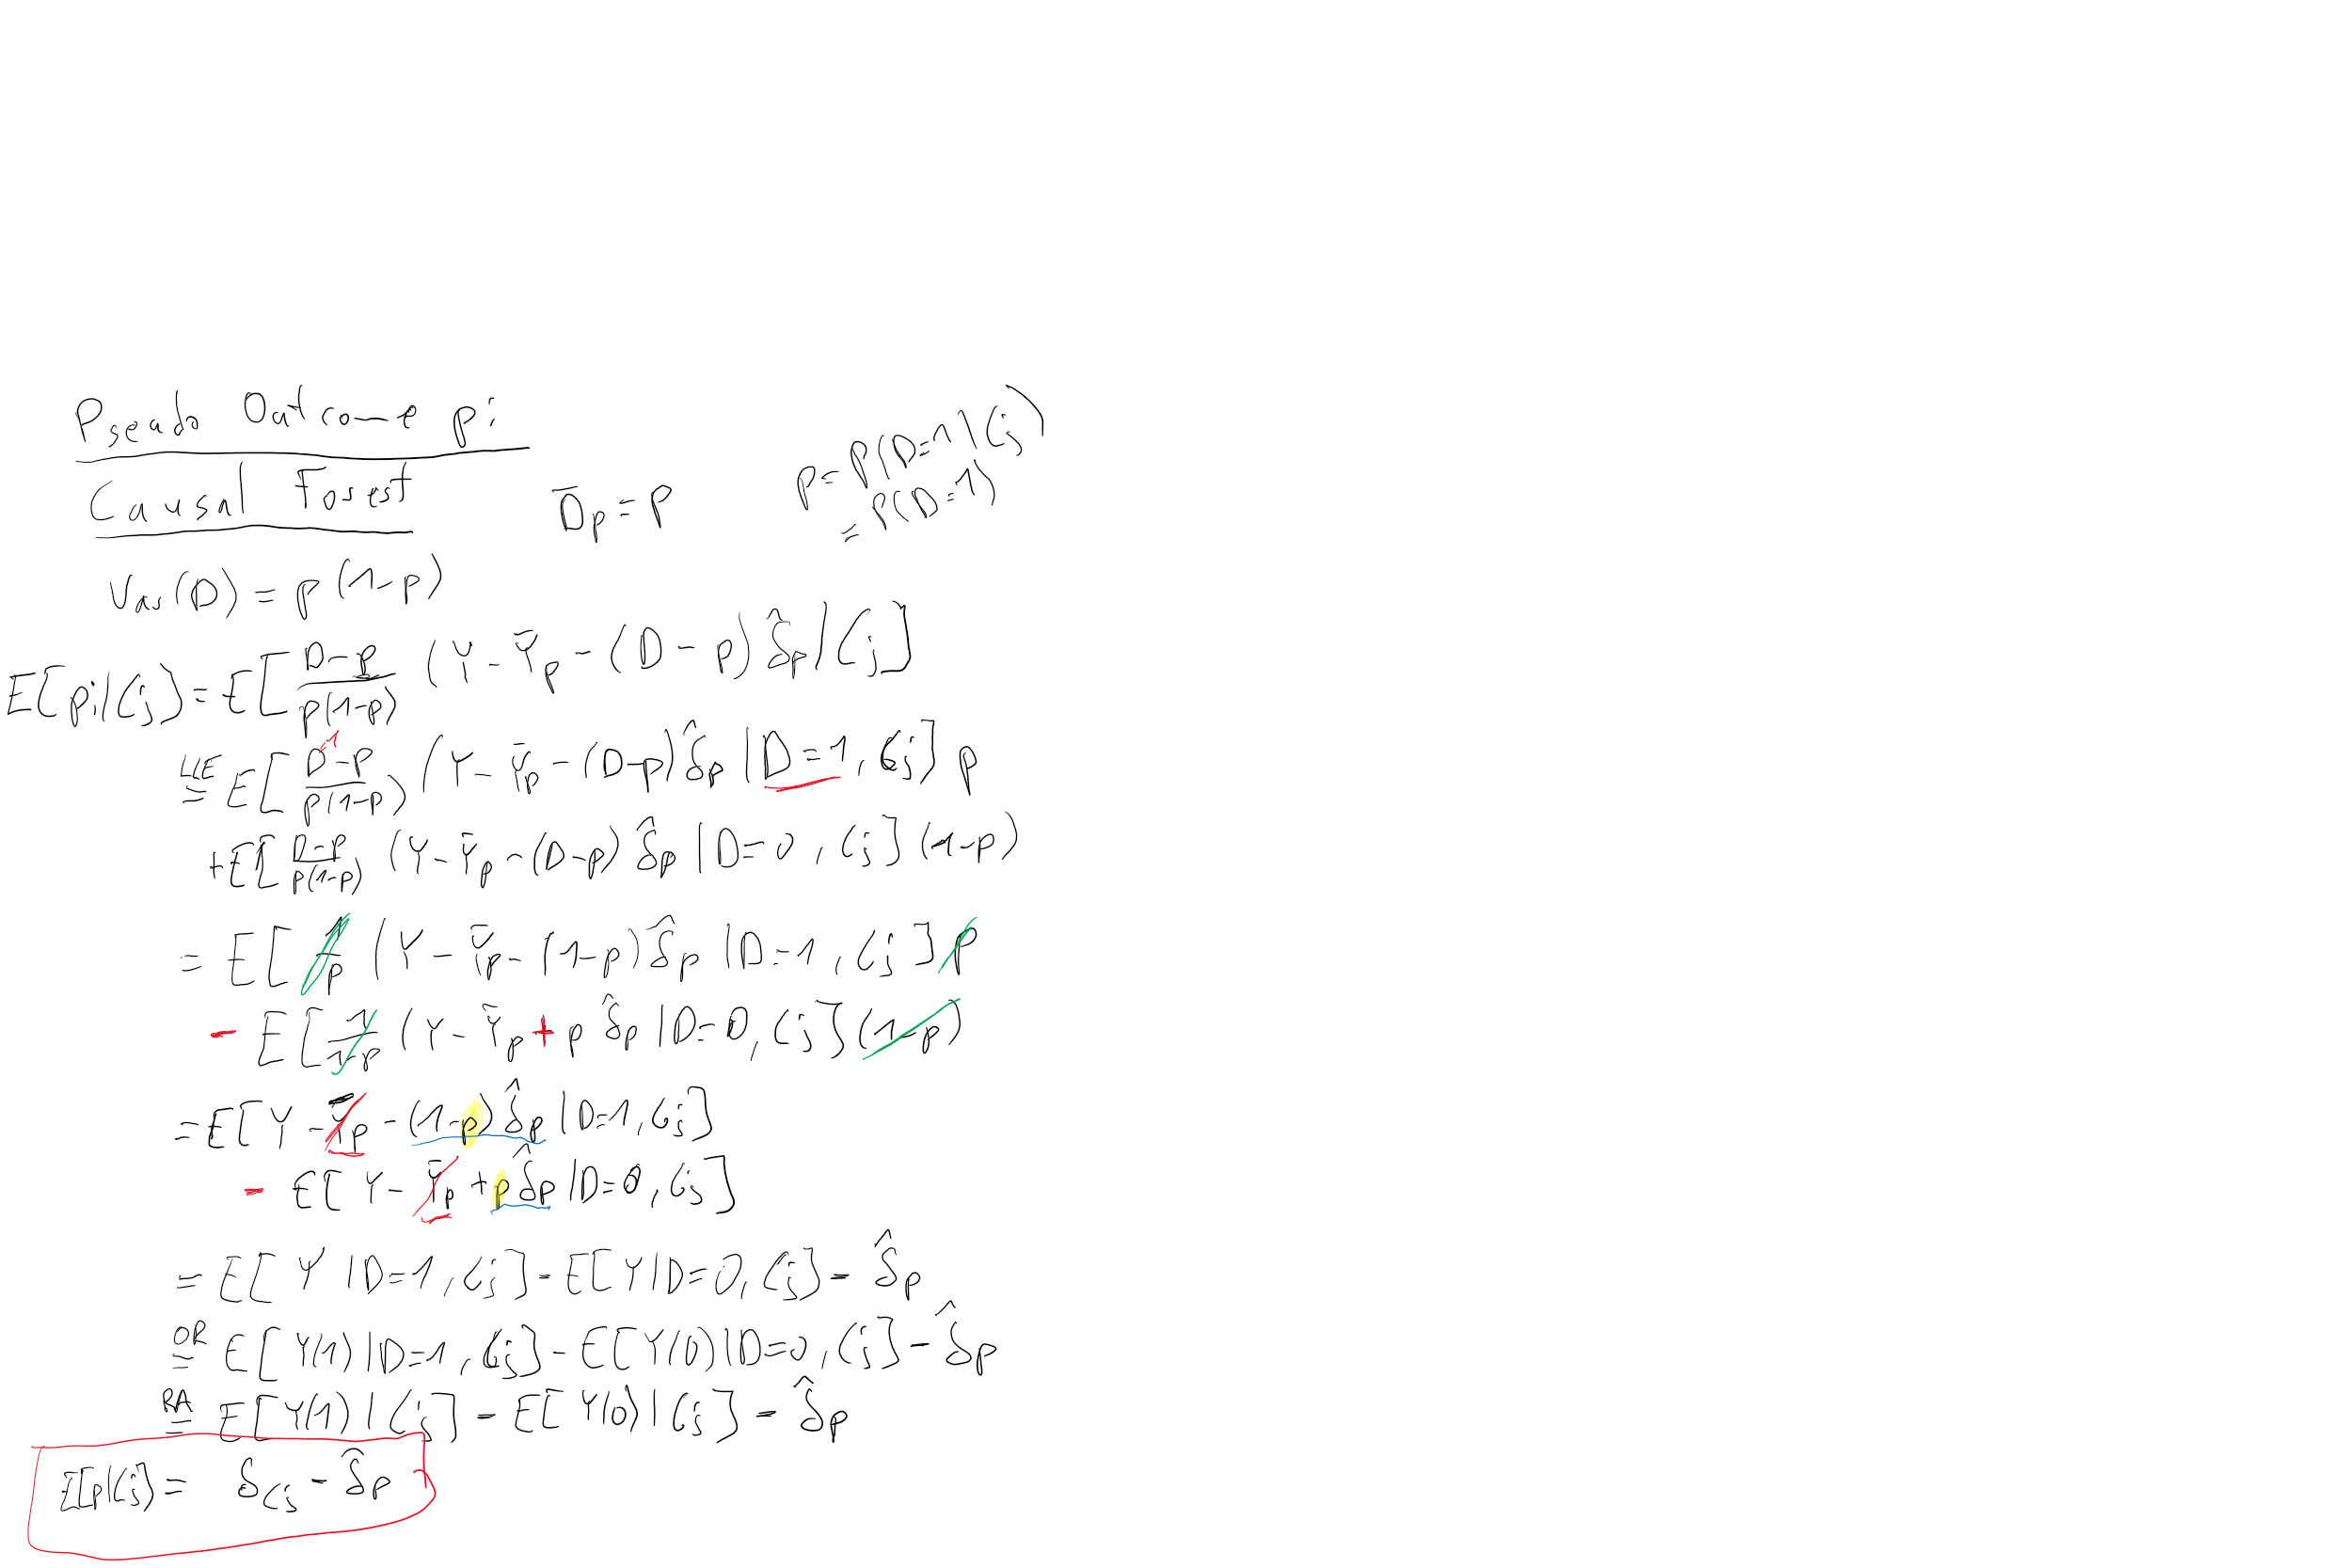 Pseudo Outcome ρi
Causal Forest
D̄_P = p
p = P(D=1|C_j)
= P(D=1)
Var(D) = p(1-p)
E[ρi|C_j] = E[ (D-p)/(p(1-p)) (Y - Ȳ_P - (D-p) δ̂_P | C_j]
LIE= E[ (D-p)/(p(1-p)) (Y - Ȳ_P - (D-p) δ̂_P | D=1, C_j] p
+ E[ (D-p)/(p(1-p)) (Y - Ȳ_P - (D-p) δ̂_P | D=0, C_j] (1-p)
= E[ 1/p (Y - Ȳ_P - (1-p) δ̂_P | D=1, C_j] p
- E[ 1/(1-p) (Y - Ȳ_P + p δ̂_P | D=0, C_j] (1-p)
= E[Y - Ȳ_P - (1-p) δ̂_P | D=1, C_j]
- E[Y - Ȳ_P + p δ̂_P | D=0, C_j]
= E[Y | D=1, C_j] - E[Y | D=0, C_j] - δ̂_P
OR= E[Y(1) | D=1, C_j] - E[Y(0) | D=0, C_j] - δ̂_P
RA= E[Y(1) | C_j] - E[Y(0) | C_j] - δ̂_P
E[ρ|C_j] = δ_Cj - δ̂_P